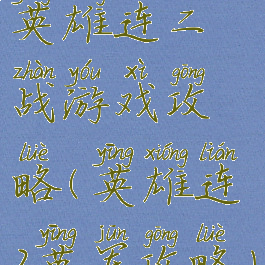 英雄连二
zhàn yóu xì gōng
战游戏攻
lüè yīng xióng lián
略(英雄连
yīng jūn gōng lüè
2英军攻略)